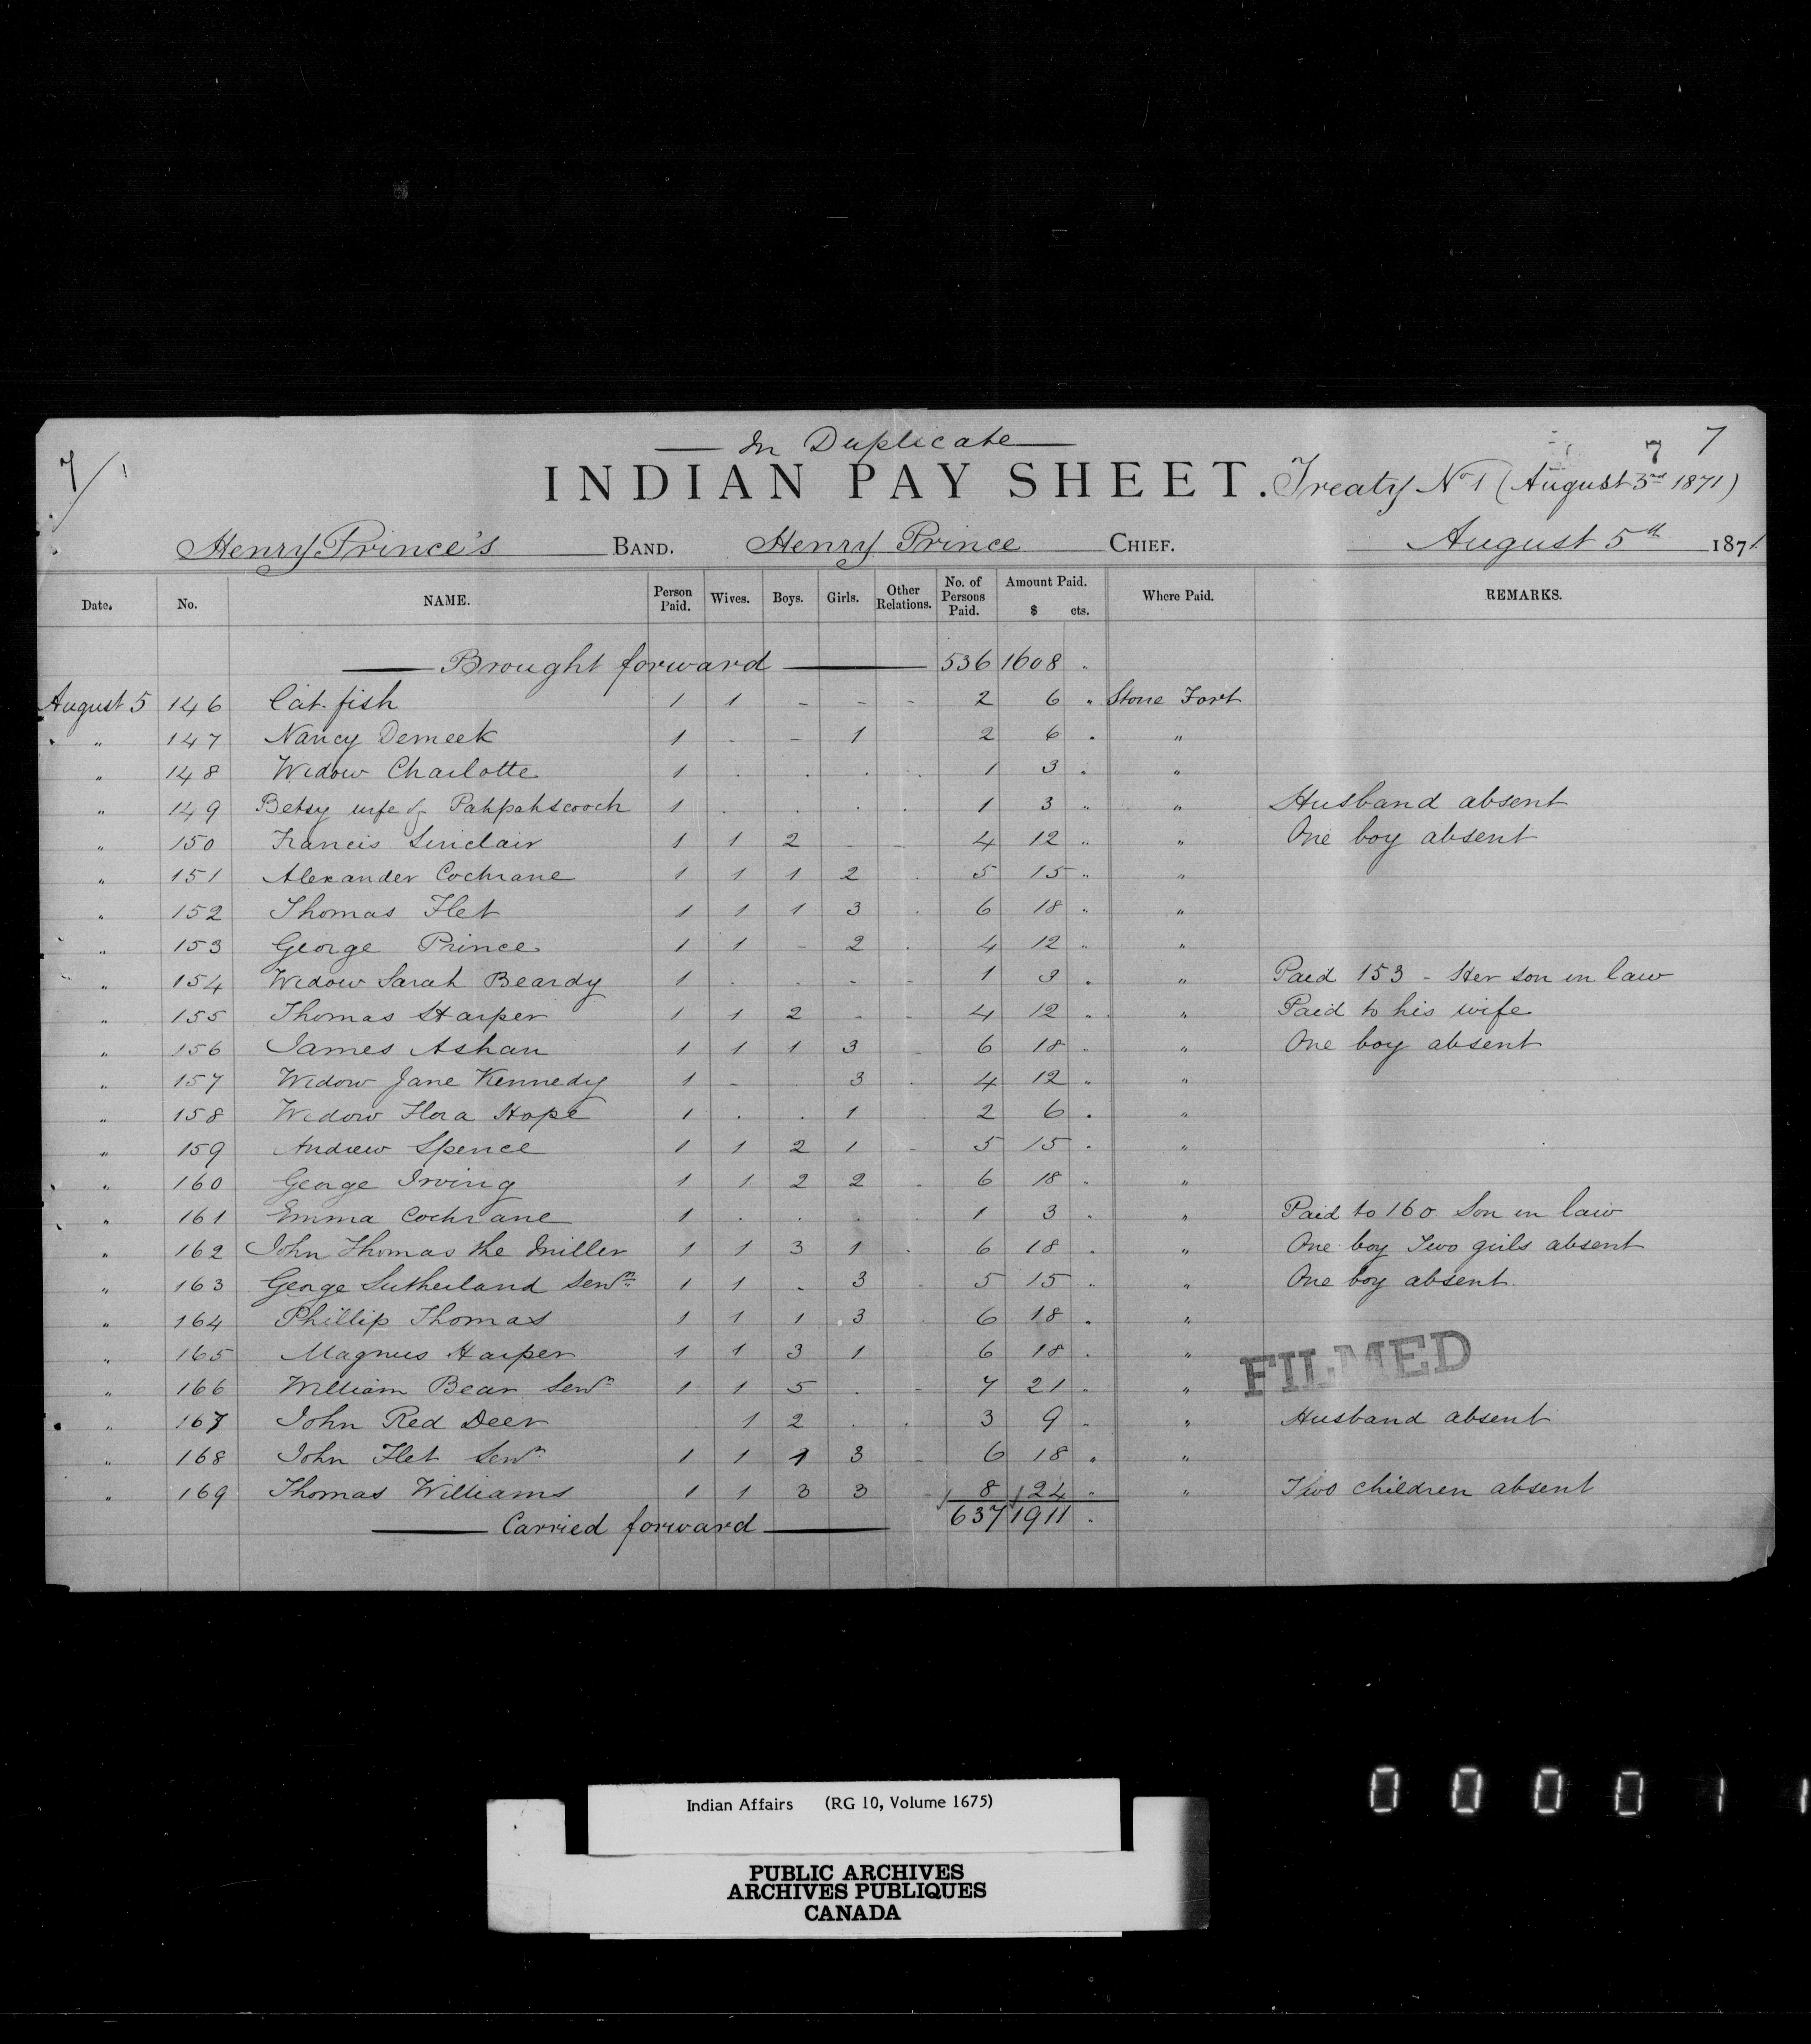 In Duplicate
7/ 7 7
INDIAN PAY SHEET. Treaty No 1 (August 3rd 1871)
Henry Prince's BAND. Henry Prince CHIEF. August 5th 1871
Date. No. NAME. Person Paid. Wives. Boys. Girls. Other Relations. No. of Persons Paid. Amount Paid. $ cts. Where Paid. REMARKS.
Brought forward 536 1608 "
August 5 146 Cat fish 1 1 - - - 2 6 " Stone Fort
" 147 Nancy Demeek 1 - - 1 2 6 " "
" 148 Widow Charlotte 1 . . . . 1 3 " "
" 149 Betsy wife of Pahpahscooch 1 . . . . 1 3 " " Husband absent
" 150 Francis Sinclair 1 1 2 - - 4 12 " " One boy absent
" 151 Alexander Cochrane 1 1 1 2 . 5 15 " "
" 152 Thomas Flet 1 1 1 3 . 6 18 " "
" 153 George Prince 1 1 - 2 . 4 12 " "
" 154 Widow Sarah Beardy 1 . . - - 1 3 " " Paid 153 - Her son in law
" 155 Thomas Harper 1 1 2 - - 4 12 " " Paid to his wife
" 156 James Asham 1 1 1 3 - 6 18 " " One boy absent
" 157 Widow Jane Kennedy 1 - 3 . 4 12 " "
" 158 Widow Flora Hope 1 . . 1 2 6 " "
" 159 Andrew Spence 1 1 2 1 - 5 15 " "
" 160 George Irving 1 1 2 2 - 6 18 " "
" 161 Emma Cochrane 1 . . . . 1 3 " " Paid to 160 Son in law
" 162 John Thomas the Miller 1 1 3 1 . 6 18 " " One boy Two girls absent
" 163 George Sutherland Senr 1 1 - 3 - 5 15 " " One boy absent
" 164 Phillip Thomas 1 1 1 3 . 6 18 " "
" 165 Magnus Harper 1 1 3 1 . 6 18 " "
FILMED
" 166 William Bear Senr 1 1 5 . - 7 21 " "
" 167 John Red Deer . 1 2 . . 3 9 " " Husband absent
" 168 John Flet Senr 1 1 1 3 - 6 18 " "
" 169 Thomas Williams 1 1 3 3 - 8 24 " " Two children absent
Carried forward 637 1911 "
Indian Affairs (RG 10, Volume 1675)
0 0 0 0 1 1
PUBLIC ARCHIVES
ARCHIVES PUBLIQUES
CANADA